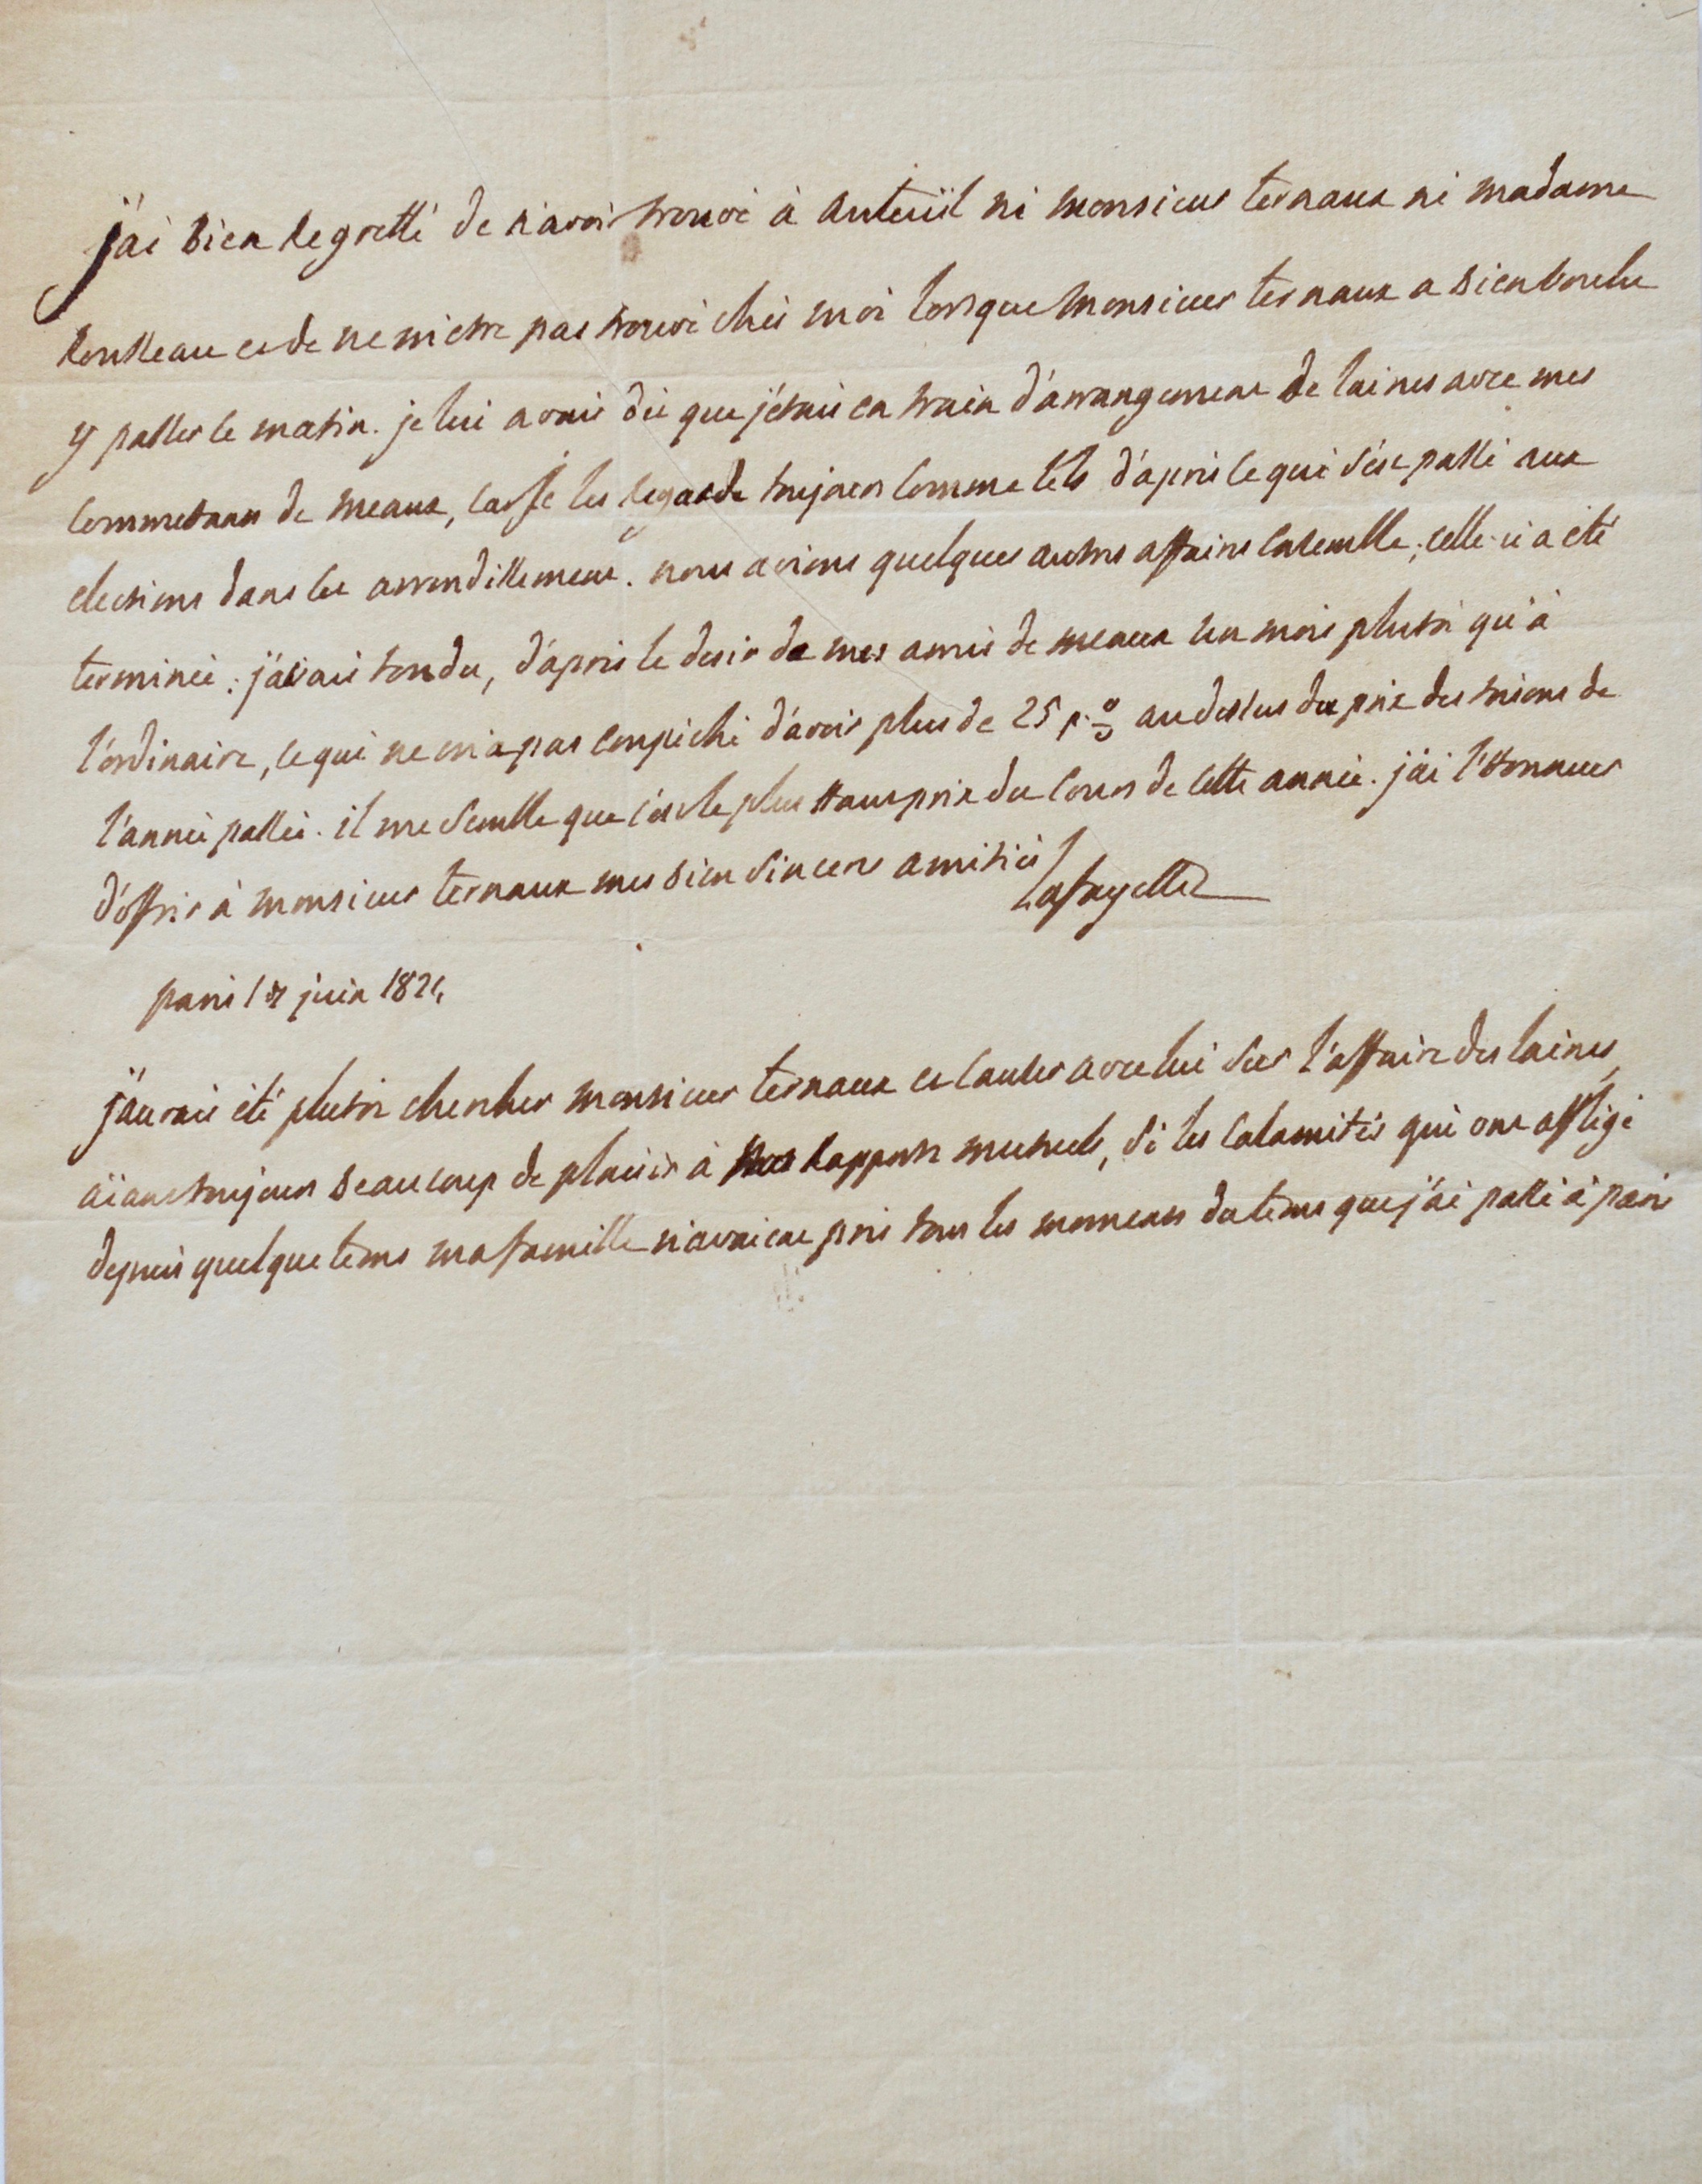 j'ai bien regretté de n'avoir trouvé à auteuil ni monsieur ternaux ni madame
rousseau et de ne m'etre pas trouvé chés moi lorsque monsieur ternaux a bien voulu
y passer le matin. je lui avais dit que j'étais en train d'arrangement de laines avec mes
commettans de meaux, car je les regarde toujours comme tels d'après ce qui s'est passé aux
elections dans cet arrondissement. nous avions quelques autres affaires ensemble; celle-ci a été
terminée: j'avais tondu, d'après le desir de mes amis de meaux un mois plutôt qu'à
l'ordinaire, ce qui ne m'a pas empêché d'avoir plus de 25 p.% au dessus du prix des toisons de
l'année passée. il me semble que c'est le plus haut prix du cours de cette année. j'ai l'honneur
d'offrir à monsieur ternaux mes bien sinceres amitiés
Lafayette
paris 17 juin
j'aurais été plutôt chercher monsieur ternaux et causer avec lui sur l'affaire des laines,
aïant toujours beaucoup de plaisir à nos rapports mutuels, si les calamités qui ont affligé
depuis quelque tems ma famille n'avaient pris tous les momens du tems que j'ai passé à paris